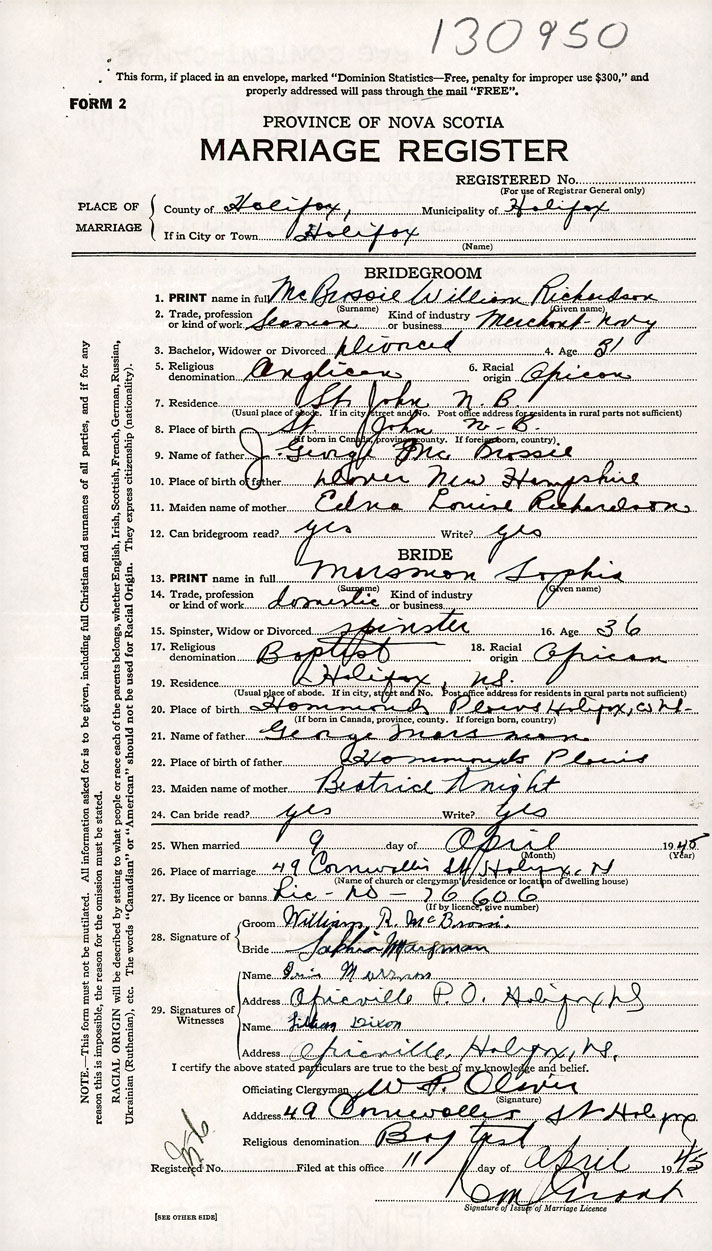 130950
This form, if placed in an envelope, marked "Dominion Statistics—Free, penalty for improper use $300," and
properly addressed will pass through the mail "FREE".
FORM 2
PROVINCE OF NOVA SCOTIA
MARRIAGE REGISTER
REGISTERED No.
(For use of Registrar General only)
PLACE OF MARRIAGE
County of Halifax, Municipality of Halifax
If in City or Town Halifax
(Name)
BRIDEGROOM
1. PRINT name in full McBrossie William Richardson
(Surname) (Given name)
2. Trade, profession or kind of work Seaman Kind of industry or business Merchant-navy
3. Bachelor, Widower or Divorced Divorced 4. Age 31
5. Religious denomination Anglican 6. Racial origin African
7. Residence St John N.B
(Usual place of abode. If in city street and No. Post office address for residents in rural parts not sufficient)
8. Place of birth St. John N-B.
(If born in Canada, province, county. If foreign born, country)
9. Name of father J. George McBrossie
10. Place of birth of father Dover New Hampshire
11. Maiden name of mother Edna Louise Richardson
12. Can bridegroom read? yes Write? yes
BRIDE
13. PRINT name in full Marsman Sophia
(Surname) (Given name)
14. Trade, profession or kind of work domestic Kind of industry or business
15. Spinster, Widow or Divorced spinster 16. Age 36
17. Religious denomination Baptist 18. Racial origin African
19. Residence Halifax, NS.
(Usual place of abode. If in city, street and No. Post office address for residents in rural parts not sufficient)
20. Place of birth Hammonds Plains Halifax, Co NS.
(If born in Canada, province, county. If foreign born, country)
21. Name of father George Marsman
22. Place of birth of father Hammonds Plains
23. Maiden name of mother Beatrice Knight
24. Can bride read? yes Write? yes
25. When married 9 day of April 1945
(Month) (Year)
26. Place of marriage 49 Cornwallis St Halifax, N
(Name of church or clergyman's residence or location of dwelling house)
27. By licence or banns Lic-no-76606
(If by licence, give number)
28. Signature of
Groom William R. McBrossi
Bride Sophia Marsman
29. Signatures of Witnesses
Name Marsman
Address Africville P.O. Halifax NS
Name Lillian Dixon
Address Africville, Halifax, NS.
I certify the above stated particulars are true to the best of my knowledge and belief.
Officiating Clergyman W. P. Oliver
(Signature)
Address 49 Cornwallis St Halifax
Religious denomination Baptist
Registered No. Filed at this office 11 day of April 1945
Grant
Signature of Issuer of Marriage Licence
[SEE OTHER SIDE]
NOTE.—This form must not be mutilated. All information asked for is to be given, including full Christian and surnames of all parties, and if for any
reason this is impossible, the reason for the omission must be stated.
RACIAL ORIGIN will be described by stating to what people or race each of the parents belongs, whether English, Irish, Scottish, French, German, Russian,
Ukrainian (Ruthenian), etc. The words "Canadian" or "American" should not be used for Racial Origin. They express citizenship (nationality).